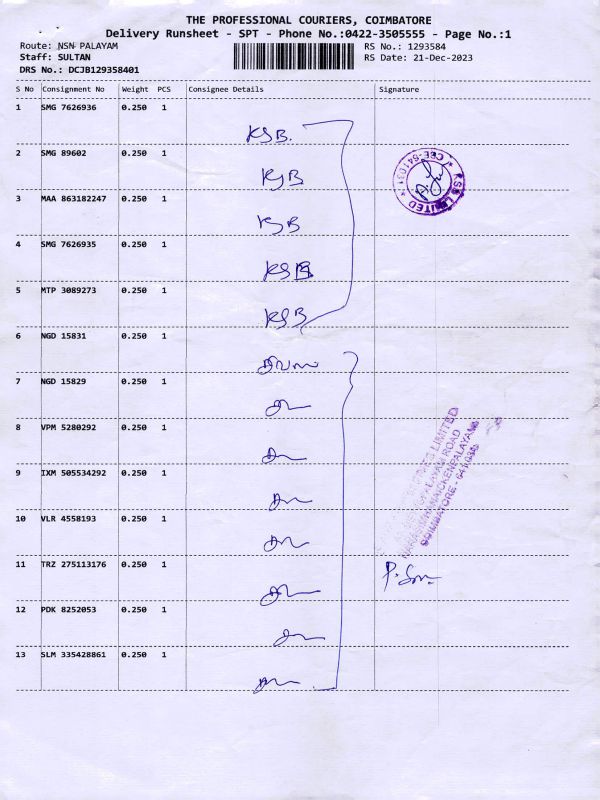 THE PROFESSIONAL COURIERS, COIMBATORE
Delivery Runsheet - SPT - Phone No.:0422-3505555 - Page No.:1
Route: NSN PALAYAM
RS No.: 1293584
Staff: SULTAN
RS Date: 21-Dec-2023
DRS No.: DCJB129358401
S No Consignment No Weight PCS Consignee Details Signature
1 SMG 7626936 0.250 1
KSB.
2 SMG 89602 0.250 1
KSB
KSB LIMITED * CBE-641031 *
3 MAA 863182247 0.250 1
KSB
4 SMG 7626935 0.250 1
KSB
5 MTP 3089273 0.250 1
KSB
6 NGD 15831 0.250 1
7 NGD 15829 0.250 1
8 VPM 5280292 0.250 1
LIMITED
ROAD
NARASIMHANAICKENPALAYAM
COIMBATORE - 641031
9 IXM 505534292 0.250 1
10 VLR 4558193 0.250 1
11 TRZ 275113176 0.250 1
12 PDK 8252053 0.250 1
13 SLM 335428861 0.250 1